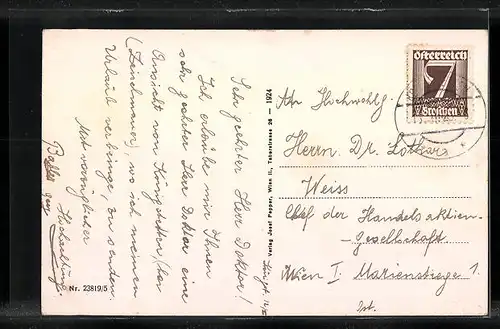 Sehr geehrter Herr Doktor!
Ich erlaube mir Ihnen
sehr geehrter Herr Doktor eine
Ansicht von Königstetten
wo ich meinen
Urlaub verbringe, zu senden.
Mit vorzüglicher
Hochachtung
Nr. 23819/5
Verlag Josef Popper, Wien II., Taborstrasse 26 — 1924
Österreich
7
Groschen
An Hochwohlg.
Herrn Dr. Lothar
Weiss
Chef der Handelsaktien-
-gesellschaft
Wien I. Marienstiege 1.